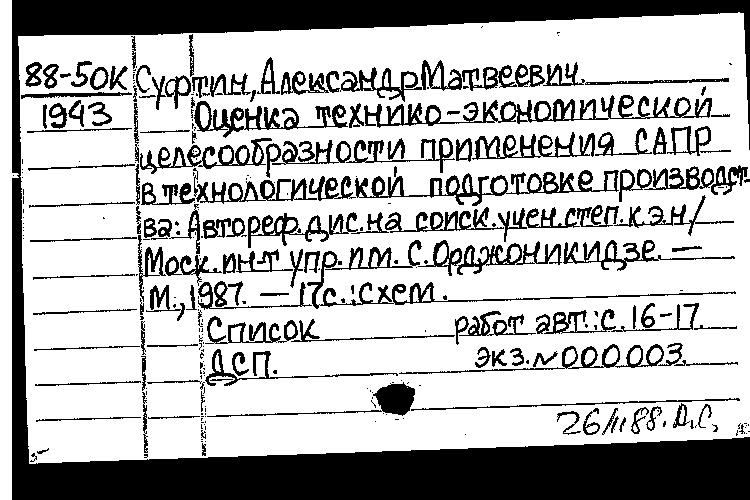 88-50К Суфтин, Александр Матвеевич.
1943 Оценка технико-экономической
целесообразности применения САПР
в технологической подготовке производст-
ва: Автореф. дис. на соиск. учен. степ. к.э.н/
Моск. ин-т упр. им. С. Орджоникидзе. —
М., 1987. — 17с.: схем.
Список работ авт.: с. 16-17.
ДСП. экз. № 000003.
26/II 88. Д.С.